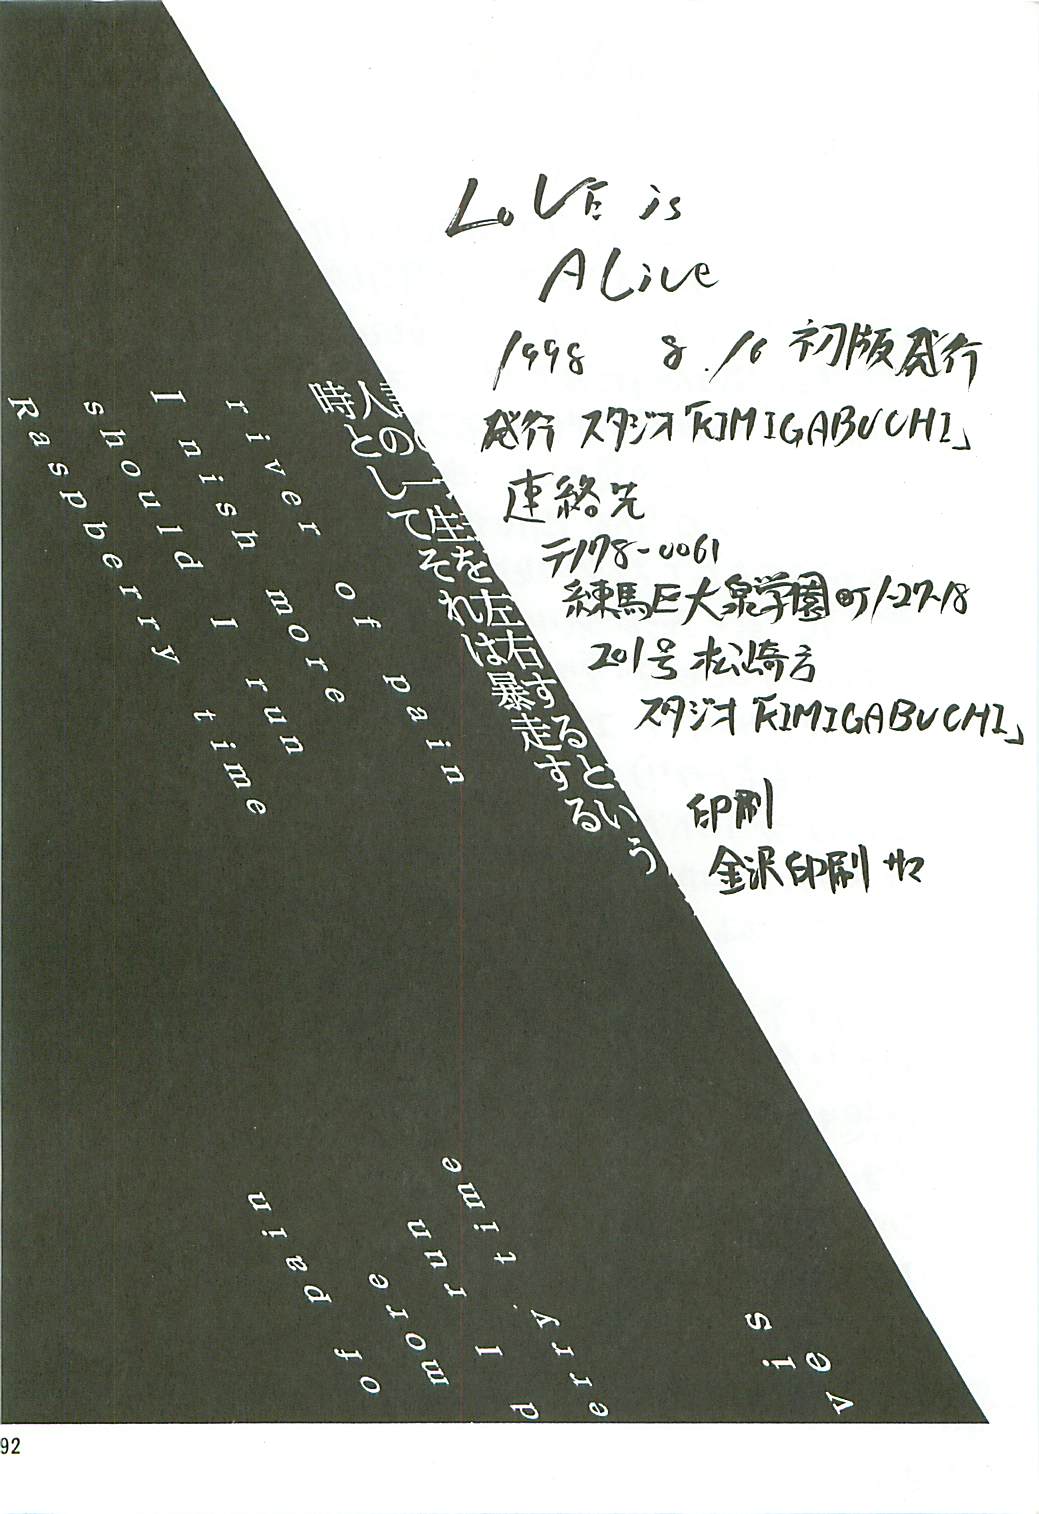 LoVE is
ALive
1998 8.16 初版発行
発行 スタジオ「KIMIGABUCHI」
連絡先
〒178-0061
練馬区大泉学園町1-27-18
201号 松崎方
スタジオ「KIMIGABUCHI」
印刷
金沢印刷サマ
人の一生を左右するという
時としてそれは暴走する
river of pain
I nish more
should I run
Raspberry time
ve is
erry time
d I run
more
of pain
92